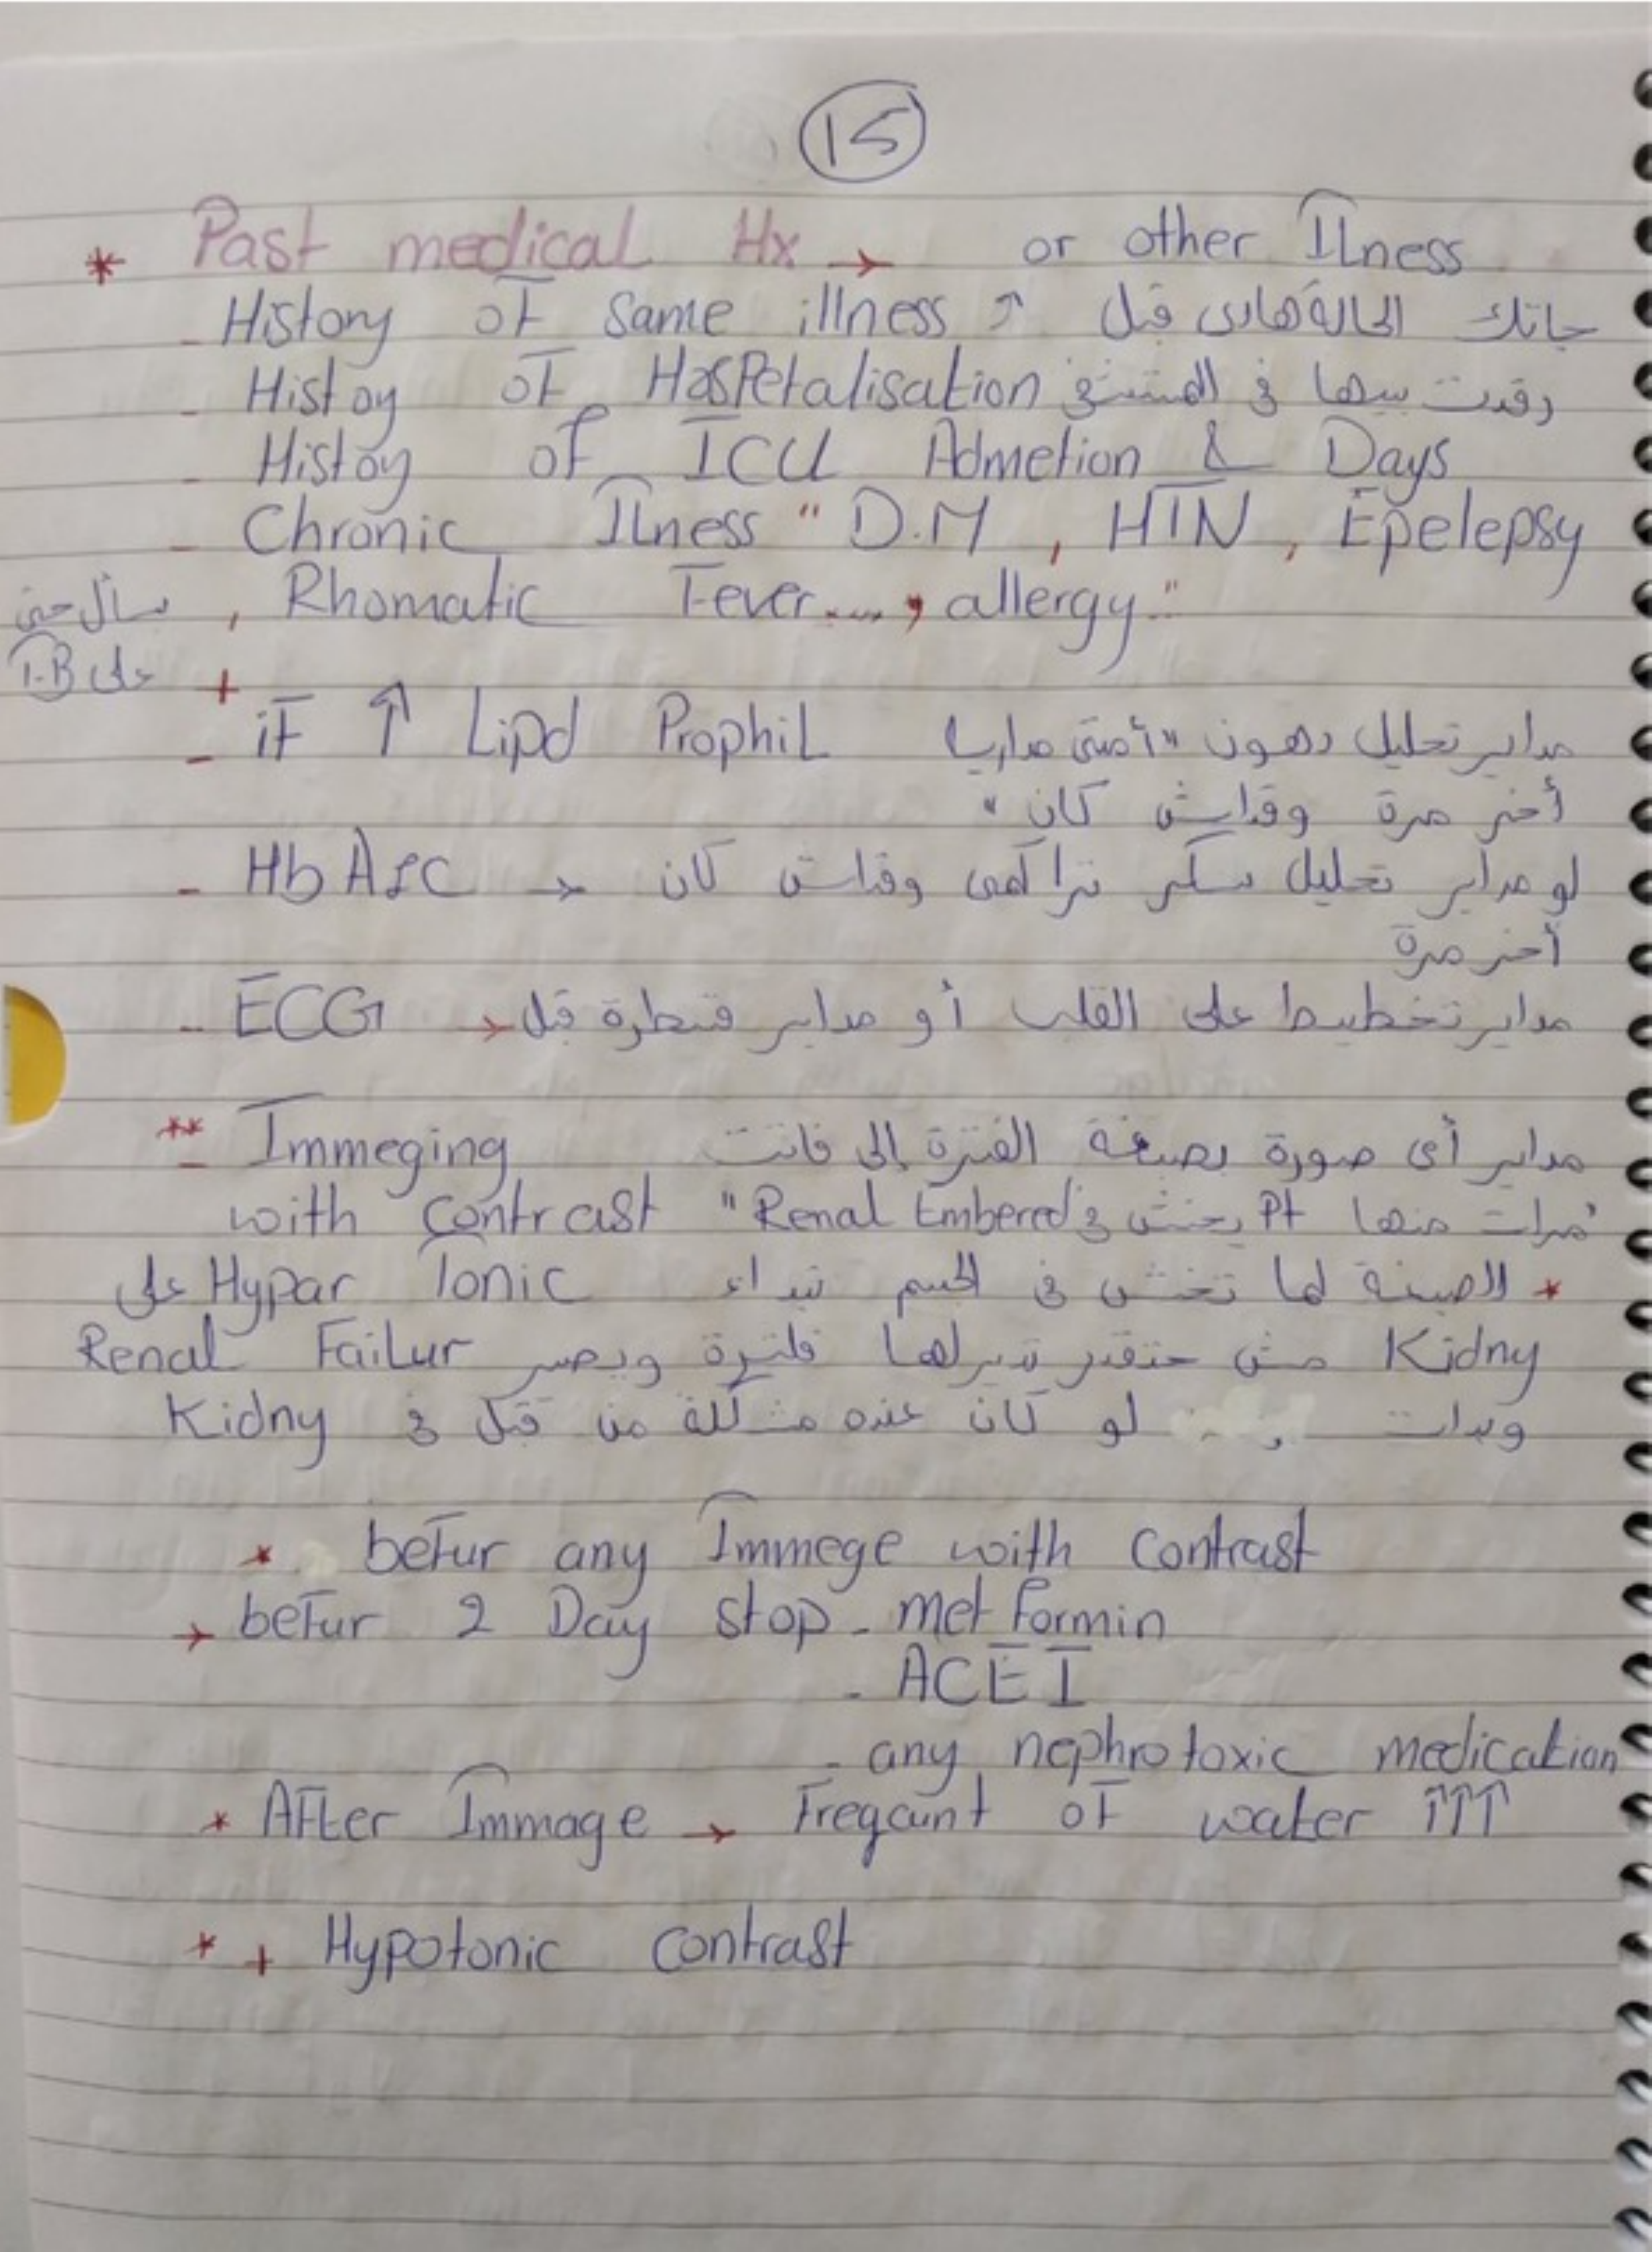 15
* Past medical Hx → or other Ilness
- History of Same illness ↗ جاتك الحالة هادى قبل
- Histoy of HosPetalisation رقدت بيها في المستشفى
- Histoy of ICU Admetion & Days
- Chronic Ilness " D.M , HTN , Epelepsy
, Rhomatic Fever .... , allergy " نسأل حتى
على T.B +
- if ↑ Lipd Prophil مداير تحليل دهون "أمتى مداريا
أخر مرة وقداش كان "
- HbA1C → لو مداير تحليل سكر تراكمى وقداش كان
أخر مرة
- ECG → مداير تخطيط على القلب أو مداير قسطرة قبل
** - Immeging مداير أى صورة بصبغة الفترة إلى فاتت
with contrast "مرات منها Pt يخش في Renal Embered"
* الصبغة لما تخش في الجسم تبداء Hypar Tonic على
Kidny مش حتقدر تديرلها فلترة ويصير Renal Failur
وبدات لو كان عنده مشكلة من قبل في Kidny
* befur any Immege with contrast
→ befur 2 Day stop - metformin
- ACEI
- any nephrotoxic medication
* After Immage → Freqaunt of water ↑↑↑
* + Hypotonic contrast